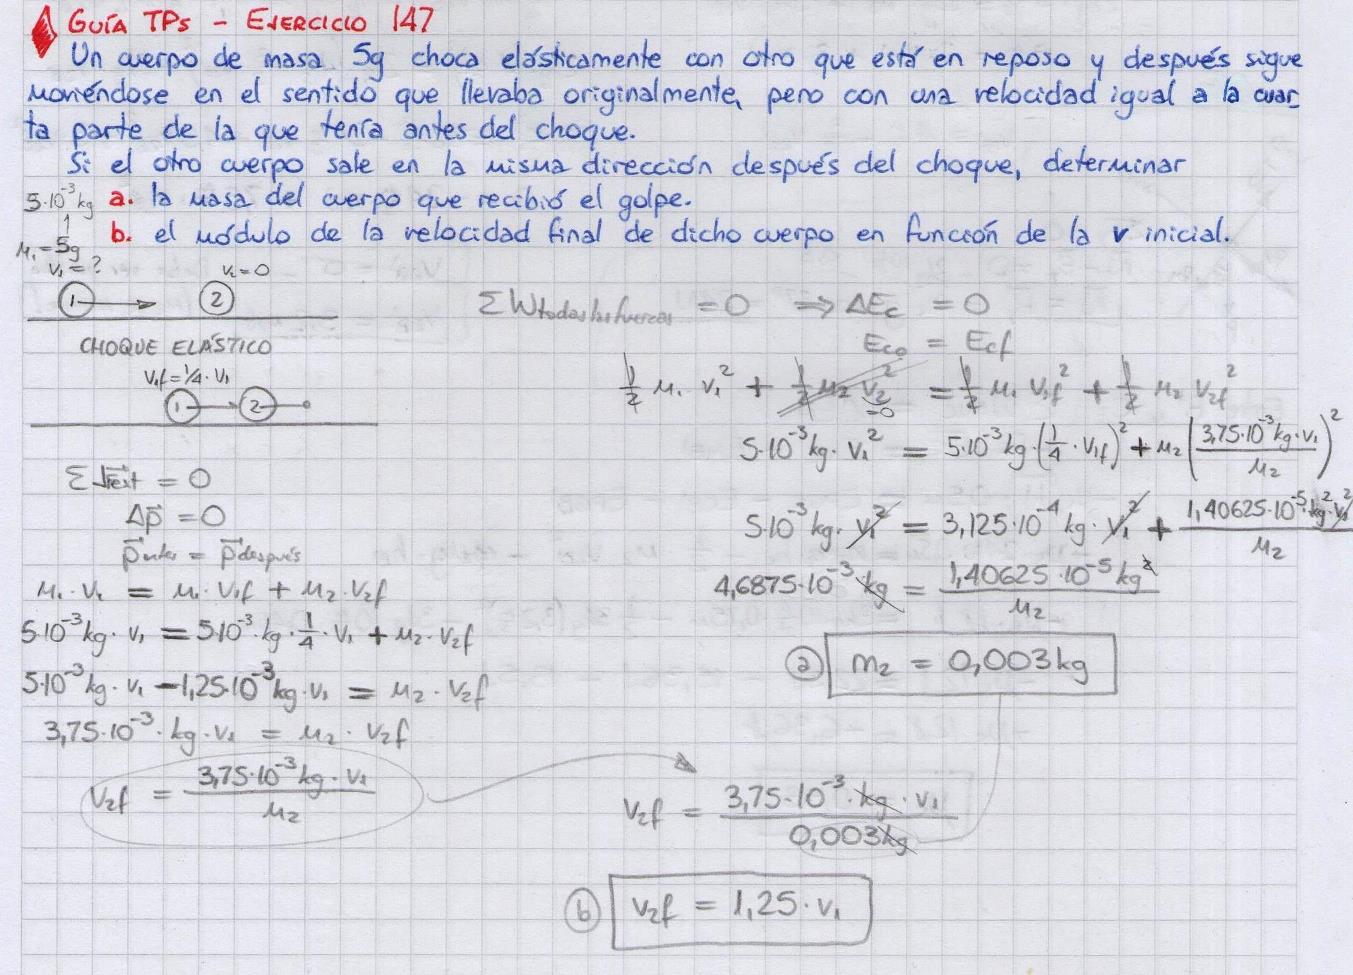 GUÍA TPS - EJERCICIO 147
Un cuerpo de masa 5g choca elásticamente con otro que está en reposo y después sigue
moviéndose en el sentido que llevaba originalmente, pero con una velocidad igual a la cuar
ta parte de la que tenía antes del choque.
Si el otro cuerpo sale en la misma dirección después del choque, determinar
a. la masa del cuerpo que recibió el golpe.
b. el módulo de la velocidad final de dicho cuerpo en función de la v inicial.
5·10⁻³ kg
↑
M₁ = 5g
v₁ = ?
v₂ = 0
1 → 2
CHOQUE ELÁSTICO
v₁f = 1/4 · v₁
1 → 2
Σ Fext = 0
Δp⃗ = 0
p⃗antes = p⃗después
M₁ · v₁ = M₁ · v₁f + M₂ · v₂f
5·10⁻³ kg · v₁ = 5·10⁻³ · kg · 1/4 · v₁ + M₂ · v₂f
5·10⁻³ kg · v₁ - 1,25·10⁻³ kg · v₁ = M₂ · v₂f
3,75·10⁻³ · kg · v₁ = M₂ · v₂f
v₂f = 3,75·10⁻³ kg · v₁ / M₂
Σ Wtodas las fuerzas = 0 ⇒ ΔEc = 0
Eco = Ecf
1/2 M₁ v₁² + 1/2 M₂ v₂² = 1/2 M₁ v₁f² + 1/2 M₂ v₂f²
=0
5·10⁻³ kg · v₁² = 5·10⁻³ kg · (1/4 · v₁f)² + M₂ (3,75·10⁻³ kg · v₁ / M₂)²
5·10⁻³ kg · v₁² = 3,125·10⁻⁴ kg · v₁² + 1,40625·10⁻⁵ kg² · v₁² / M₂
4,6875·10⁻³ kg = 1,40625·10⁻⁵ kg² / M₂
a m₂ = 0,003 kg
v₂f = 3,75·10⁻³ · kg · v₁ / 0,003 kg
b v₂f = 1,25 · v₁